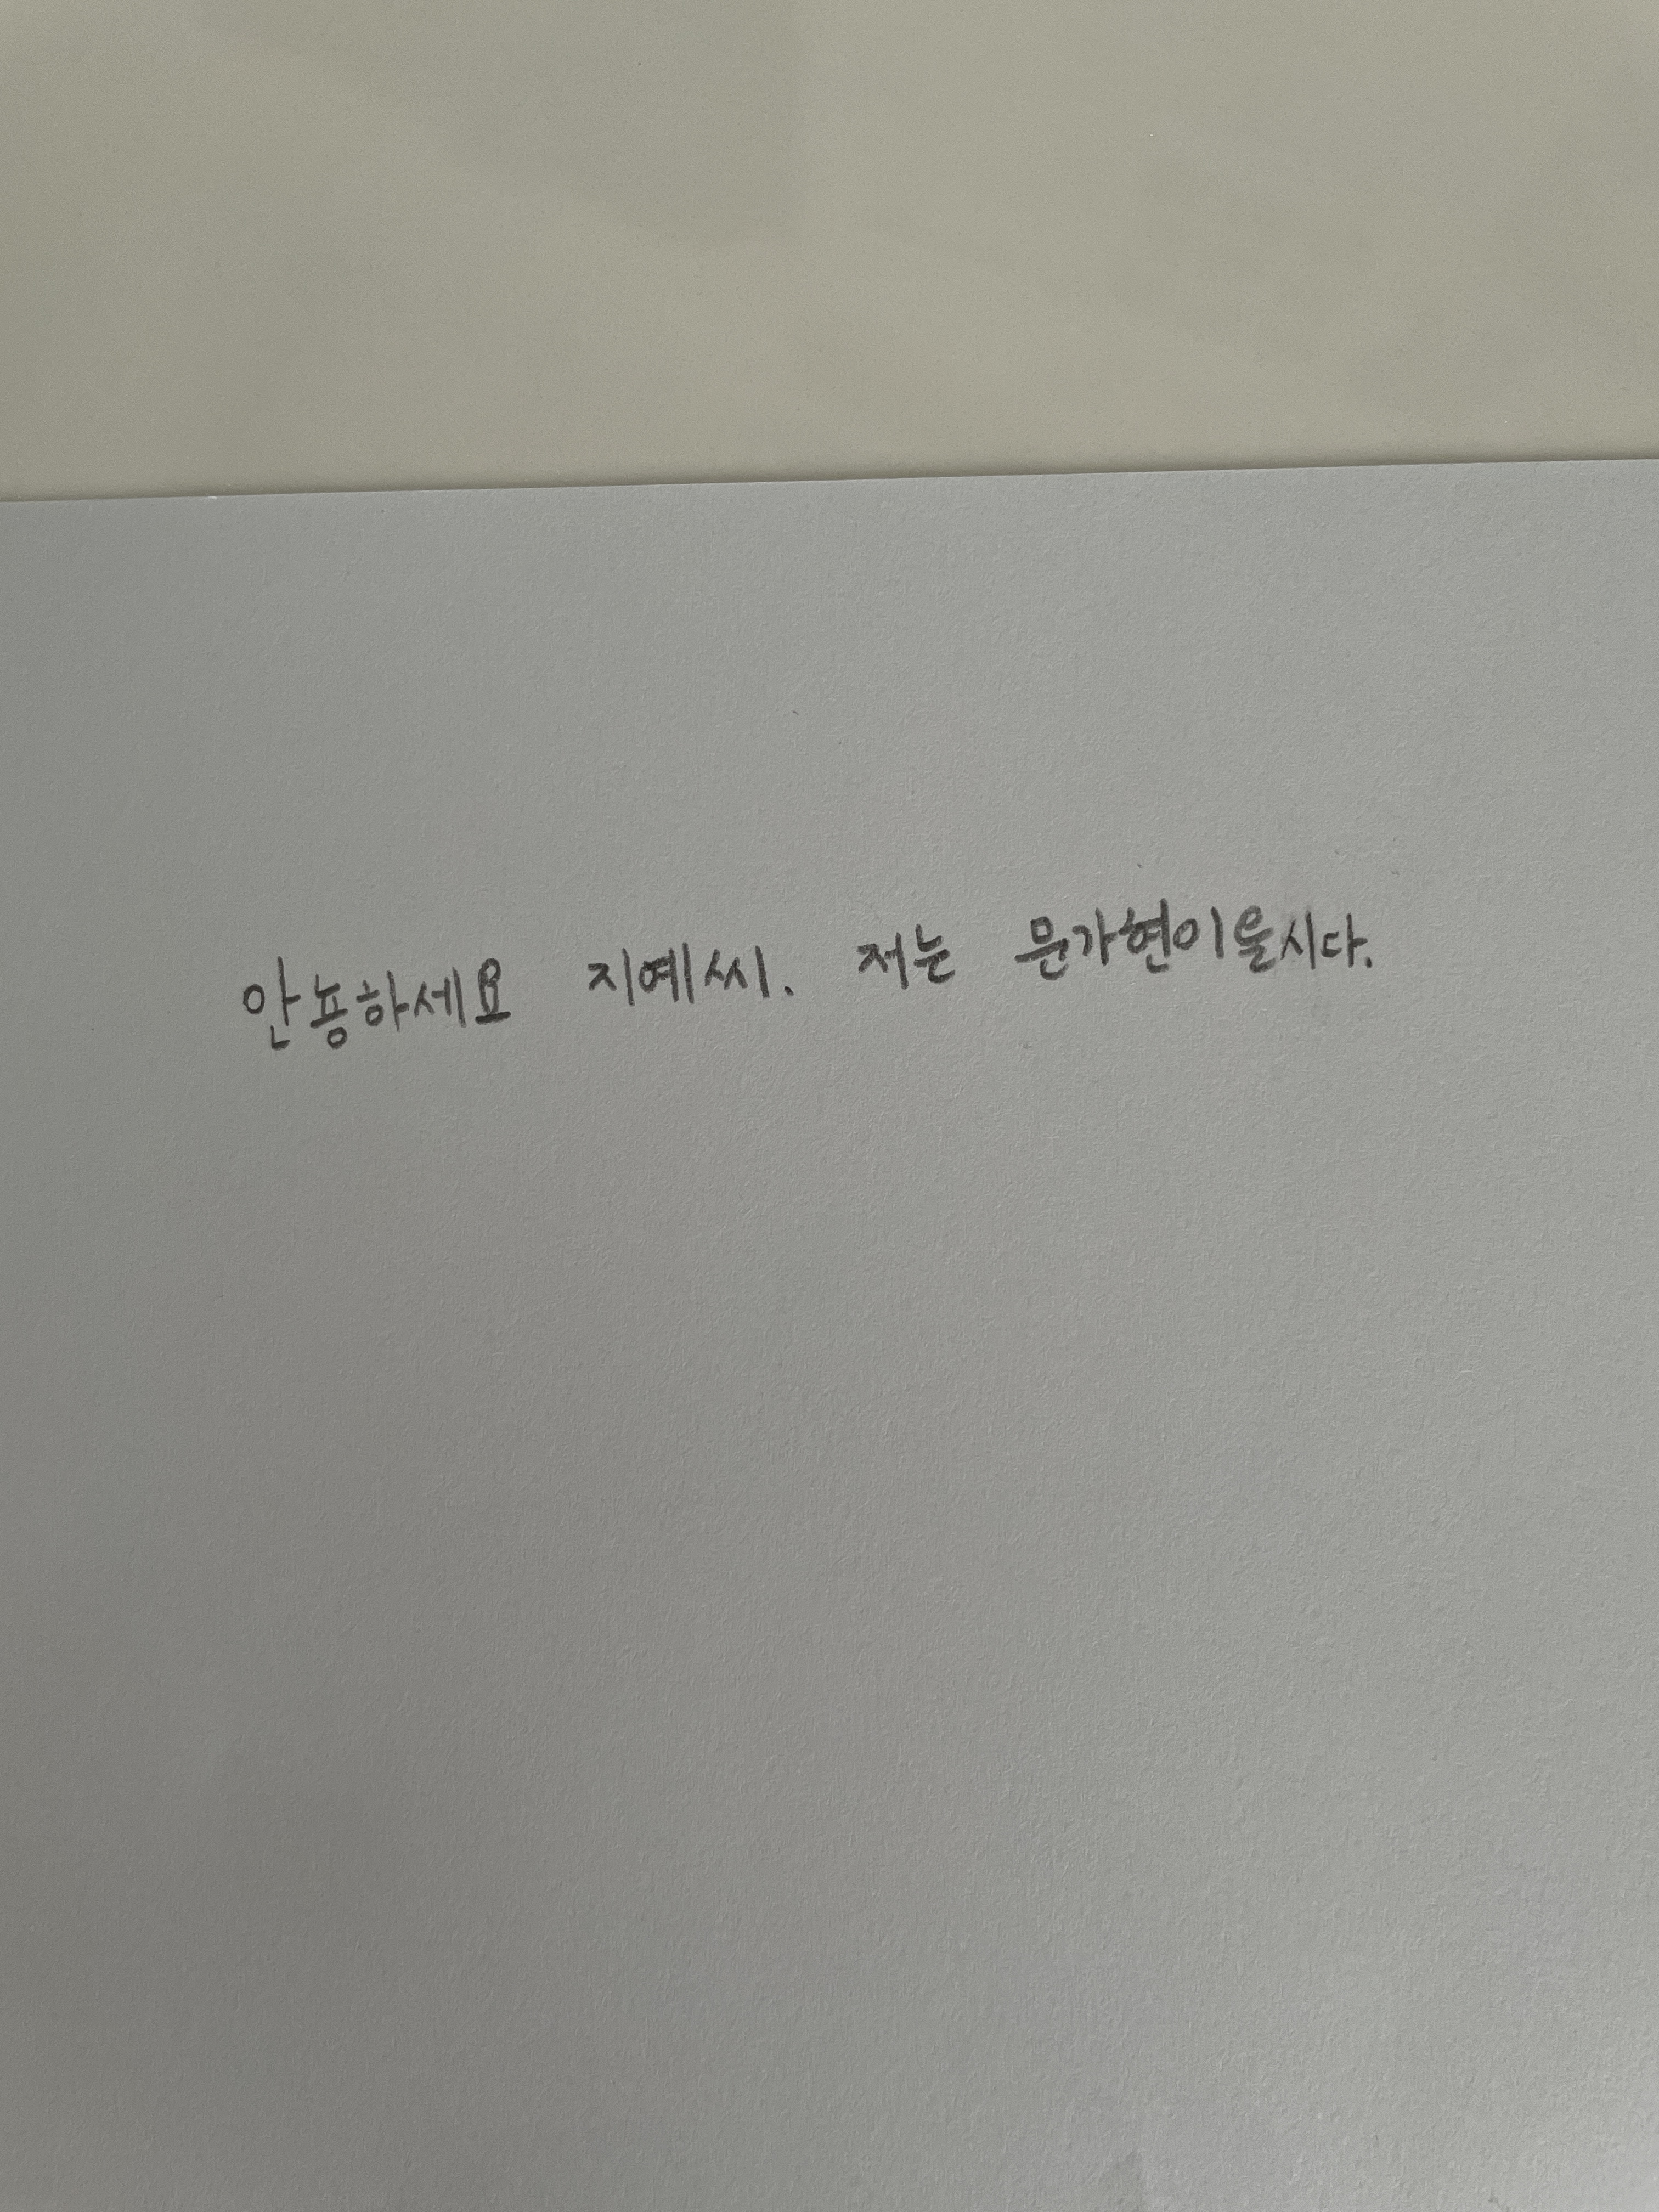 안뇽하세요 지예씨. 저는 문가현이올시다.